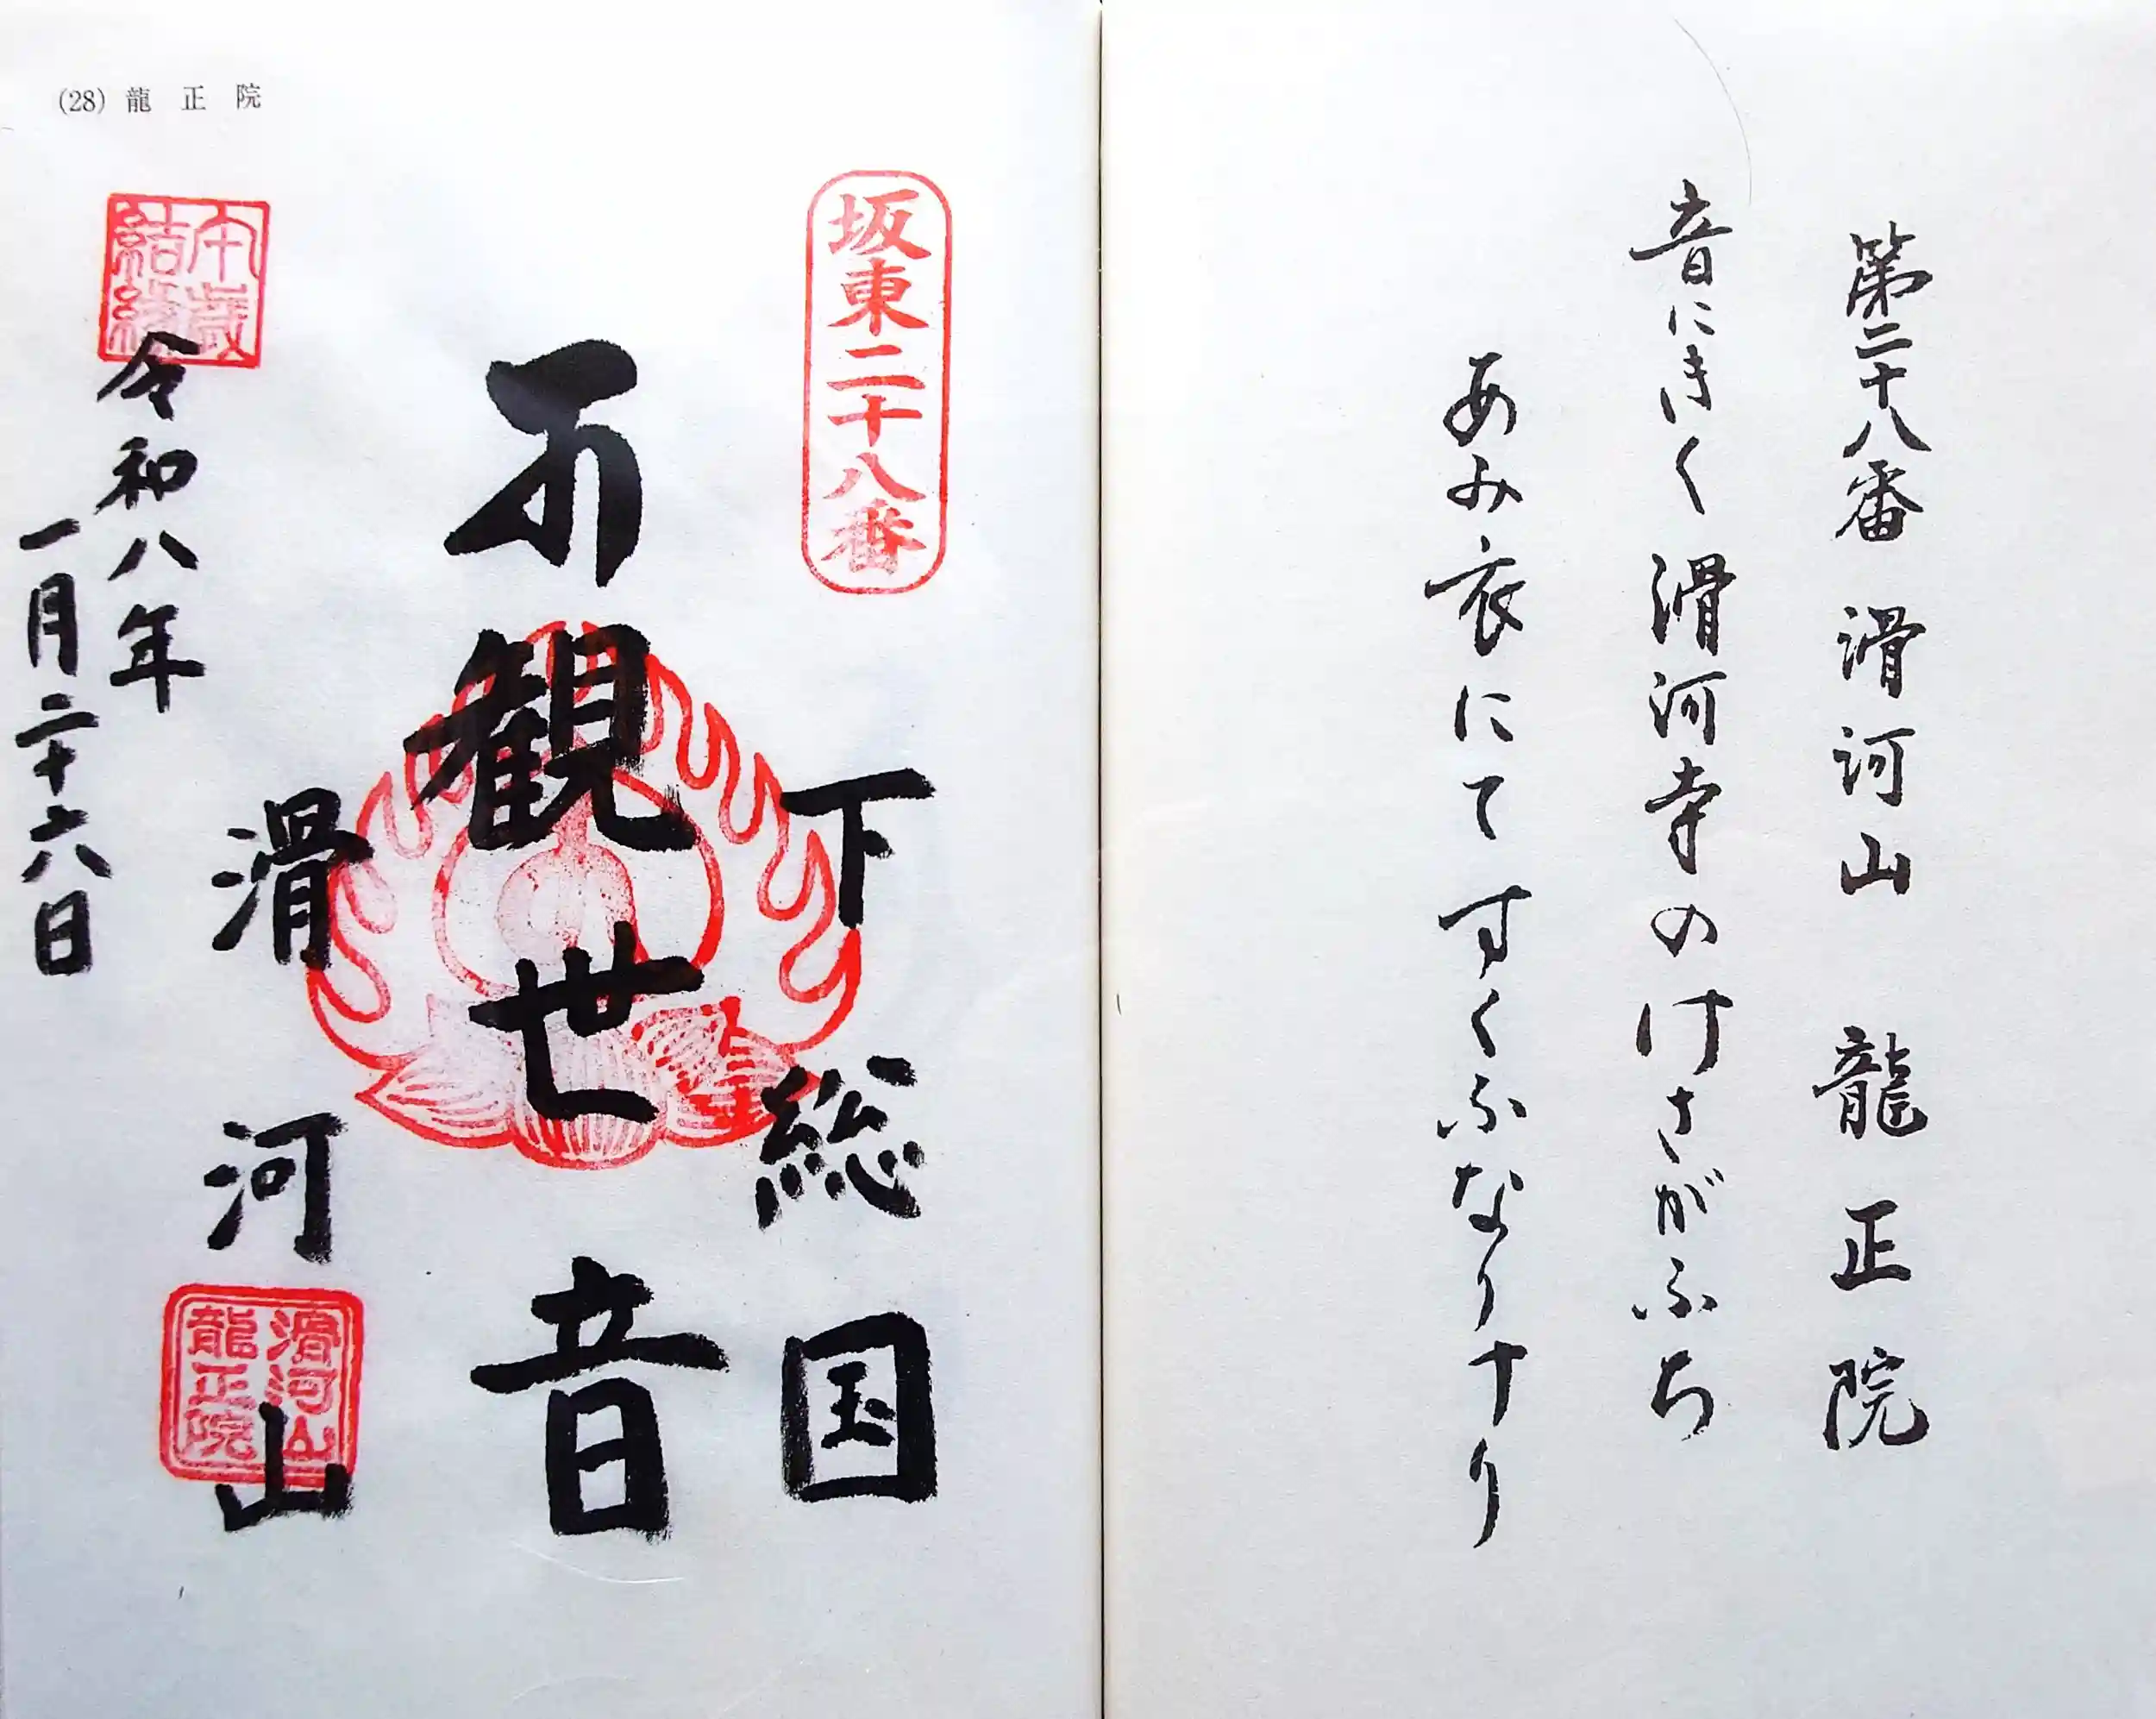 第二十八番 滑河山 龍正院
音にきく滑河寺のけさがふち
あみ衣にてすくふなりけり
(28) 龍正院
坂東二十八番
下総国
観世音
滑河山
滑河山
龍正院
午歳
結縁
令和八年
一月二十六日